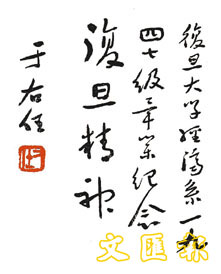 復旦大学經濟系一九
四七級畢業紀念
復旦精神
于右任
文匯报